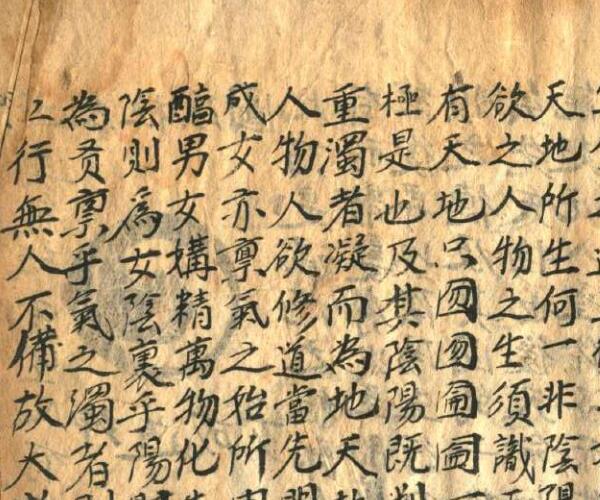 天地所生何一非陰陽
欲之人物之生須識
有天地只囫囫圇圇
極是也及其陰陽既判
重濁者凝而為地天
人物人欲修道當先
成女亦稟氣之始所
醕男女媾精萬物化
陰則爲女陰裏乎陽
為稟乎氣之濁者
行無人不備故大